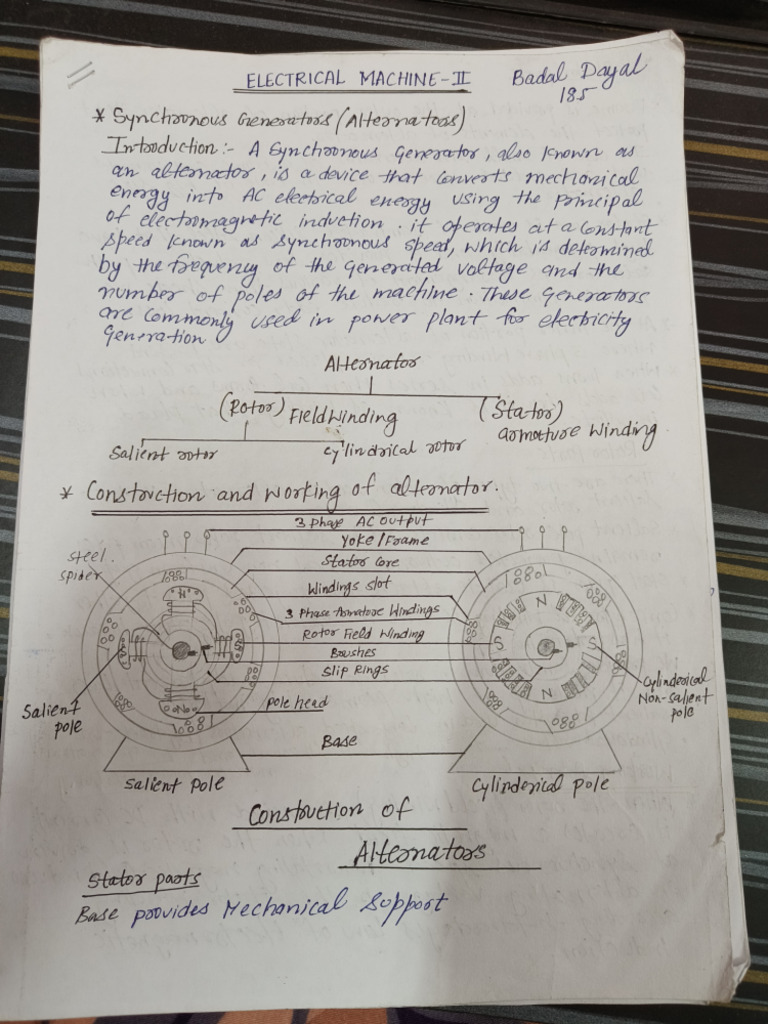 ELECTRICAL MACHINE-II
Badal Dayal
185
* Synchronous Generators (Alternators)
Introduction:- A Synchronous Generator, also known as
an alternator, is a device that converts mechanical
energy into AC electrical energy using the principal
of electromagnetic induction. it operates at a constant
speed known as synchronous speed, which is determined
by the frequency of the generated voltage and the
number of poles of the machine. These generators
are commonly used in power plant for electricity
Generation
Alternator
(Rotor) Field Winding
(Stator)
armature winding
Salient rotor
cylindrical rotor
* Construction and working of alternator.
3 Phase AC output
Yoke/Frame
Stator core
Windings slot
3 Phase Armature Windings
Rotor Field Winding
Brushes
Slip Rings
pole head
Base
steel
spider
Salient
pole
N
S
S
N
N
S
S
N
Cylinderical
Non-salient
pole
Salient pole
Cylinderical pole
Construction of
Alternators
Stator parts
Base provides Mechanical Support